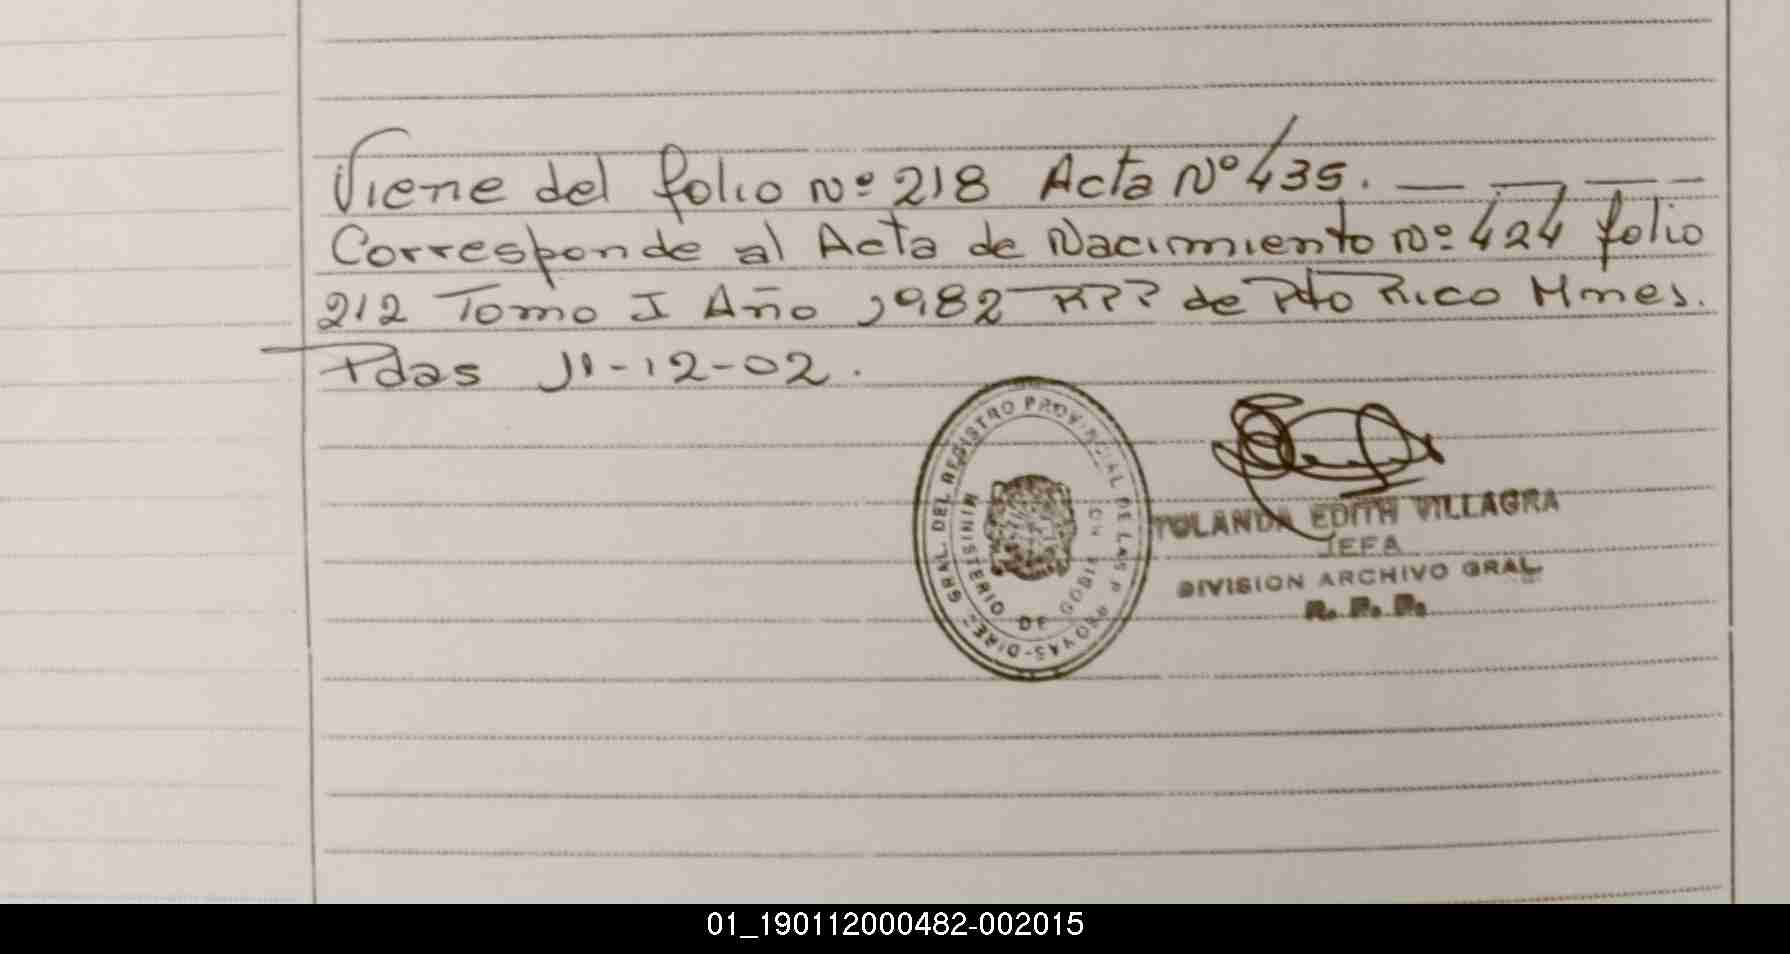 Viene del folio Nº 218 Acta Nº 435.
Corresponde al Acta de Nacimiento Nº 424 folio
212 Tomo I Año 1982 RPP de Pto Rico Mnes.
Pdas 11-12-02.
DIREC GRAL. DEL REGISTRO PROVINCIAL DE LAS P
MINISTERIO DE GOBIE
YOLANDA EDITH VILLAGRA
JEFA
DIVISION ARCHIVO GRAL
R. P. P.
01_190112000482-002015